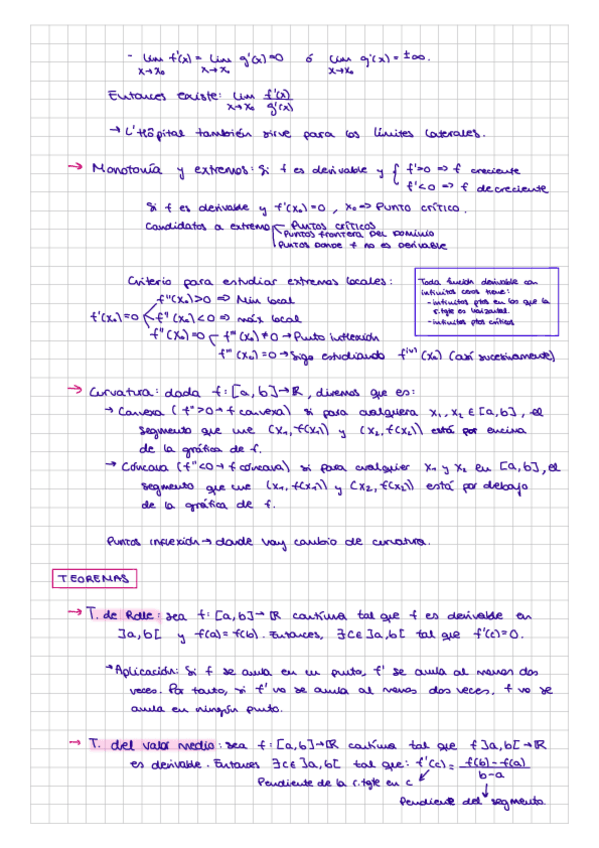 - lim f'(x) = lim g'(x) = 0 ó lim g(x) = ±∞.
x→x₀ x→x₀ x→x₀
Entonces existe: lim f'(x)/g'(x)
x→x₀
→ L'Hôpital también sirve para los límites laterales.
→ Monotonía y extremos: Si f es derivable y { f'>0 => f creciente
f'<0 => f decreciente
Si f es derivable y f'(x₀)=0, x₀ => Punto crítico.
Candidatos a extremo Puntos críticos
Puntos frontera del dominio
Puntos donde f no es derivable
Criterio para estudiar extremos locales:
f''(x₀)>0 => Mín local
f'(x₀)=0 f''(x₀)<0 => máx local
f''(x₀)=0 f'''(x₀)≠0 → Punto inflexión
f'''(x₀)=0 → Sigo estudiando f^(IV)(x₀) (así sucesivamente)
Toda función derivable con
infinitos ceros tiene:
- infinitos ptos en los que la
r.tgte es horizontal.
- infinitos ptos críticos
→ Curvatura: dada f: [a,b]→ℝ, diremos que es:
→ Convexa (f''>0→f convexa) si para cualquiera x₁, x₂ ∈ [a,b], el
segmento que une (x₁,f(x₁)) y (x₂,f(x₂)) está por encima
de la gráfica de f.
→ Cóncava (f''<0→f cóncava) si para cualquier x₁ y x₂ en [a,b], el
segmento que une (x₁,f(x₁)) y (x₂,f(x₂)) está por debajo
de la gráfica de f.
Puntos inflexión → donde hay cambio de curvatura.
TEOREMAS
→ T. de Rolle: sea f: [a,b]→ℝ continua tal que f es derivable en
]a,b[ y f(a)=f(b). Entonces, ∃c∈]a,b[ tal que f'(c)=0.
→ Aplicación: Si f se anula en un punto, f' se anula al menos dos
veces. Por tanto, si f' no se anula al menos dos veces, f no se
anula en ningún punto.
→ T. del valor medio: sea f: [a,b]→ℝ continua tal que f ]a,b[→ℝ
es derivable. Entonces ∃c∈]a,b[ tal que: f'(c) = f(b)-f(a)/b-a
Pendiente de la r.tgte en c
Pendiente del segmento